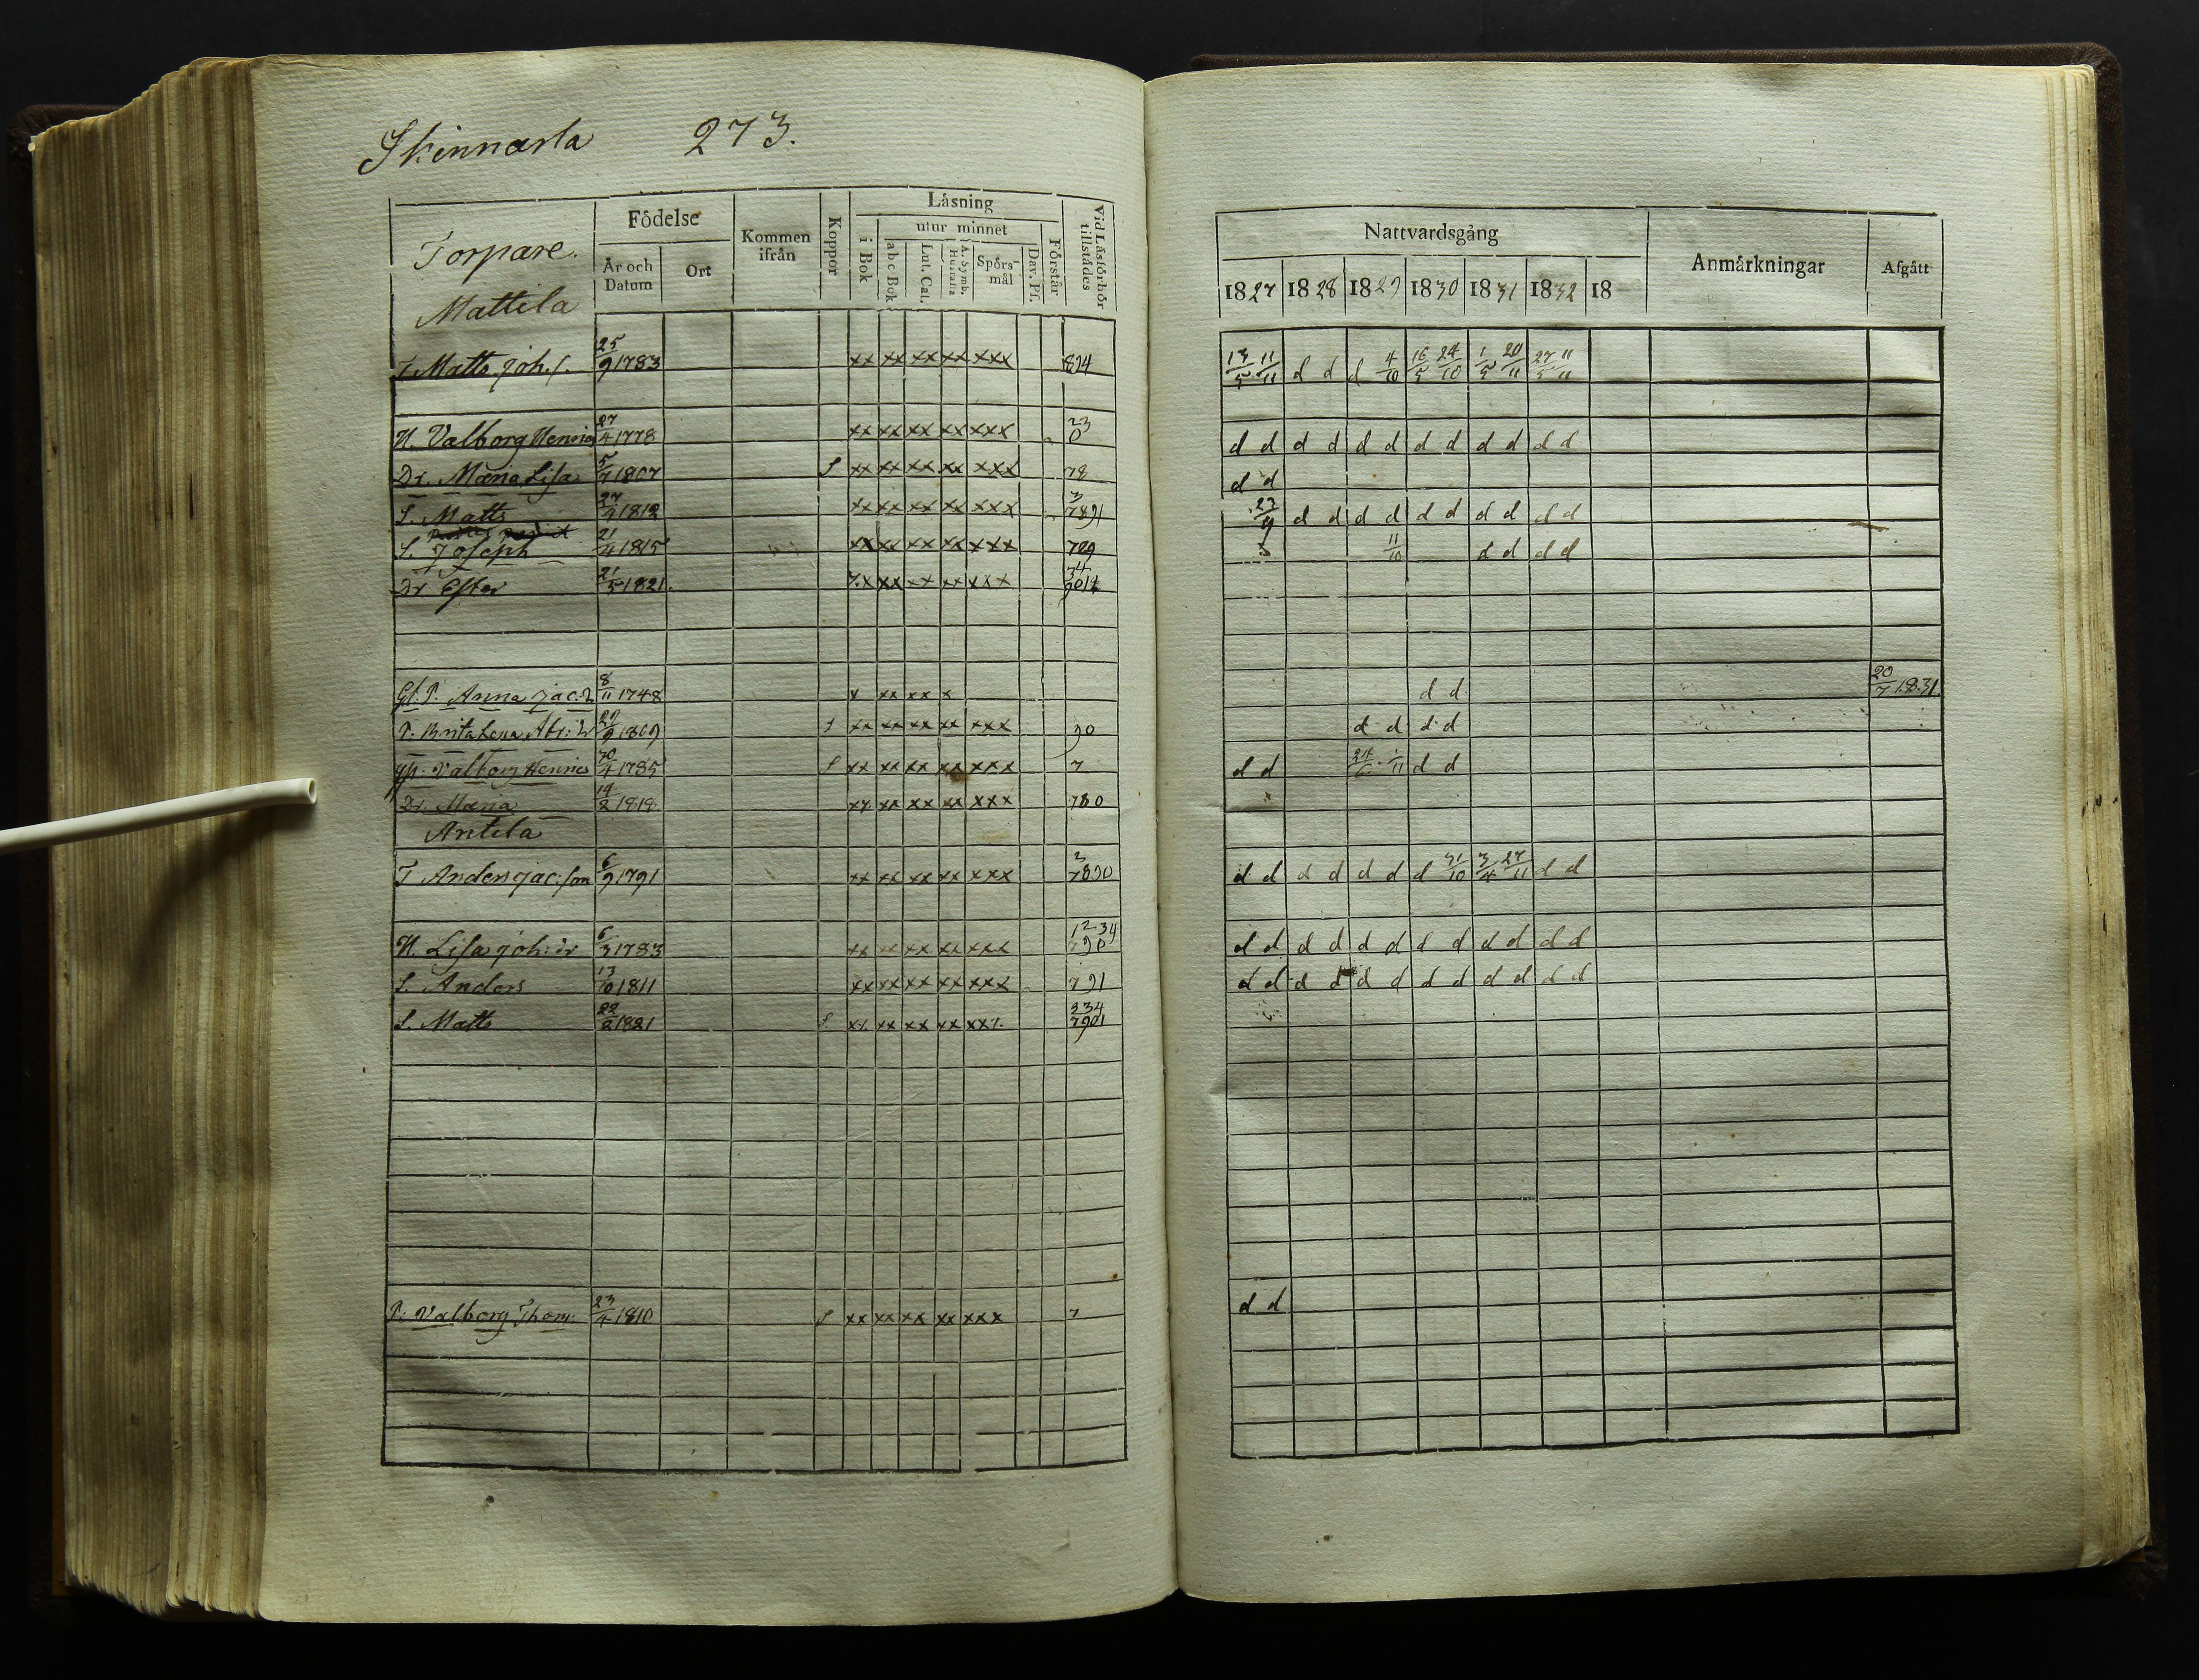 Skinnarla 273.
Torpare.
Mattila
Födelse
År och Datum
Ort
Kommen ifrån
Koppor
Läsning
utur minnet
i Bok
a b c Bok
Lut. Cat.
A. Symb. Hustafla
Spörsmål
Dav. Ps.
Förstår
Vid Läsförhör tillstädes
Nattvardsgång
1827 1828 1829 1830 1831 1832 18
Anmärkningar
Afgått
T. Matts Joh. s. 25/9 1783 xx xx xx xx xxx 13/5 11/11 d d d 4/10 16/5 24/10 1/5 20/11 27/5 11/11
H. Valborg Henrics 27/4 1778 xx xx xx xx xxx 23 0 d d d d d d d d d d d d
Dr. Maria Lisa 5/7 1807 S xx xx xx xx xxx 78 d d
S. Matts 27/4 1812 xx xx xx xx xxx 3 7891 23/9 d d d d d d d d d d
S. Joseph 21/4 1815 xx xx xx xx xxx 789 11/10 d d d d
Dr Ester 21/5 1821. xx xx xx xx xxx 34 9012
Gl. P. Anna Jac. d 8/11 1748 x xx xx x d d 20/7 1831
P. Brita Lena Abr: d 29/9 1809 S xx xx xx xx xxx 90 d d d d
Valborg Henrics 30/4 1785 S xx xx xx xx xxx 7 d d d d
Dr. Maria 14/2 1818 xx xx xx xx xxx 780
Antila
T Anders Jac: son 6/9 1791 xx xx xx xx xxx 3 7890 d d d d d d d 31/10 3/4 27/11 d d
H. Lisa Joh: dr 6/3 1783 xx xx xx xx xxx 1234 790 d d d d d d d d d d d d
S. Anders 13/10 1811 xx xx xx xx xxx 791 d d d d d d d d d d d d
S. Matts 22/2 1821 S xx xx xx xx xxx 234 7901
P: Valborg Thom: 23/4 1810 S xx xx xx xx xxx 7 d d